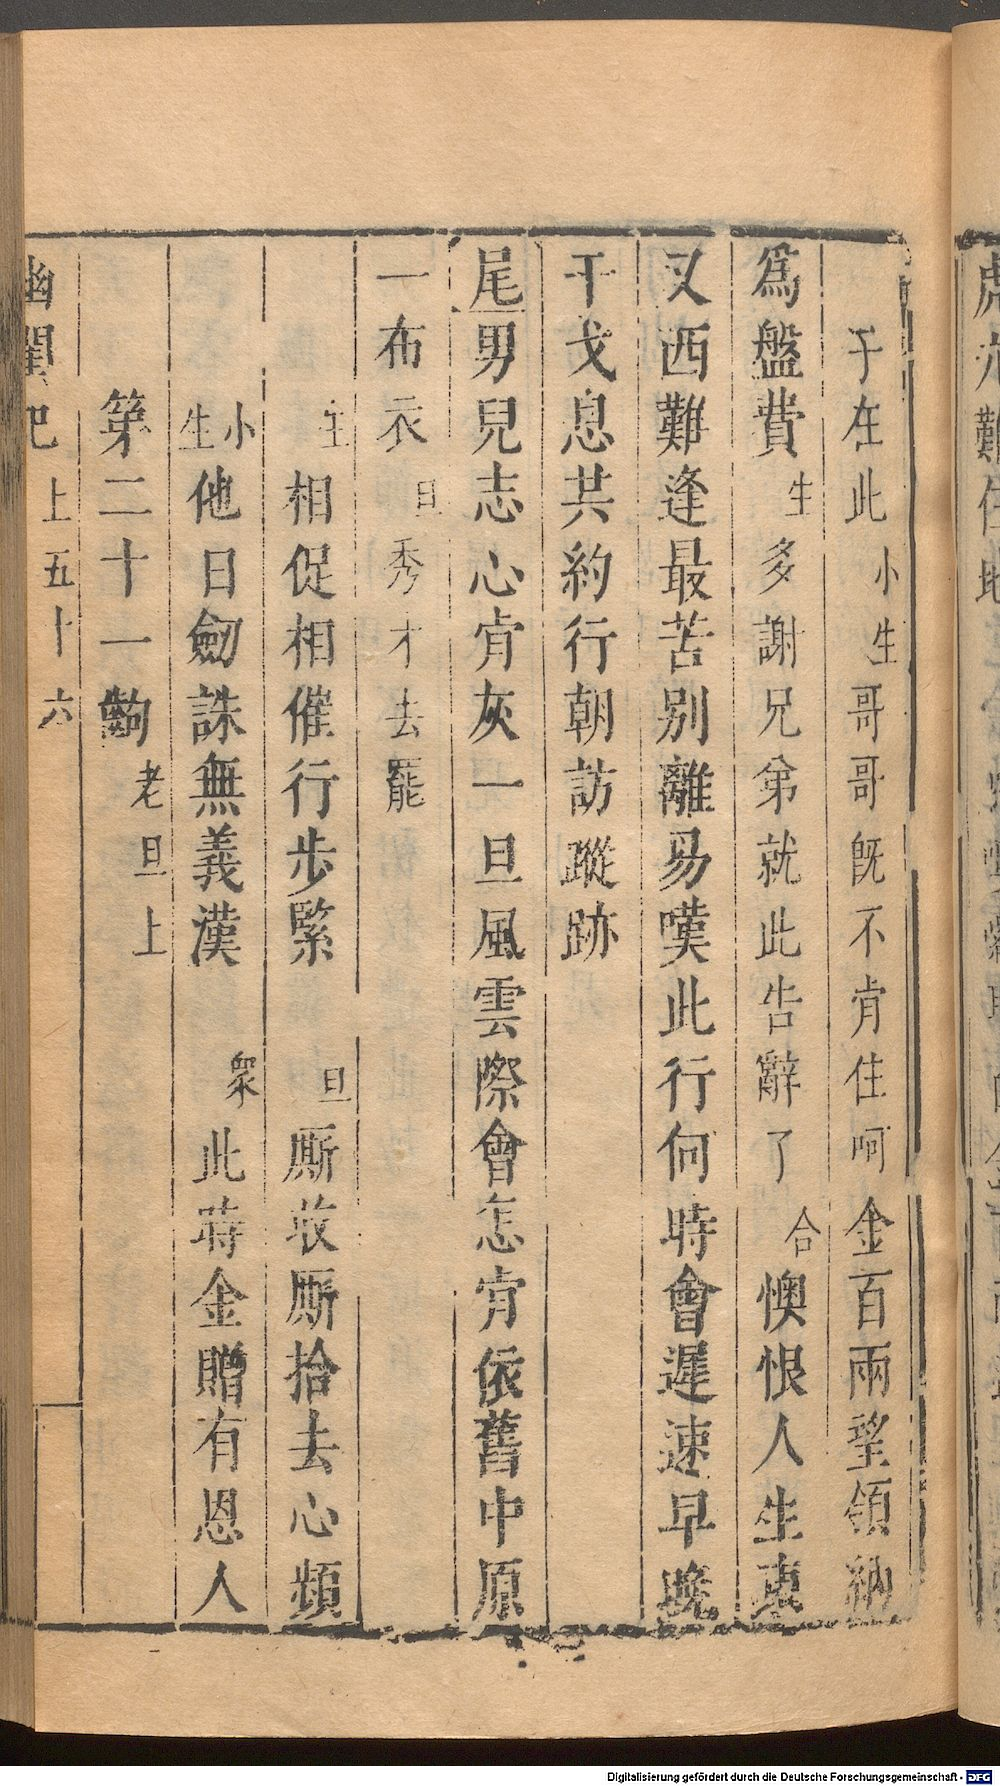 于在此小生哥哥旣不肯住呵金百兩望領納
爲盤費生多謝兄弟就此告辭了合懊恨人生東
又西難逢最苦別離易嘆此行何時會遲速早晚
干戈息共約行朝訪蹤跡
尾男兒志心肯灰一旦風雲際會怎肯依舊中原
一布衣旦秀才去罷
生相促相催行步緊旦厮收厮拾去心頻
小生他日劒誅無義漢衆此時金贈有恩人
第二十一齣老旦上
幽閨記上五十六
Digitalisierung gefördert durch die Deutsche Forschungsgemeinschaft - DFG